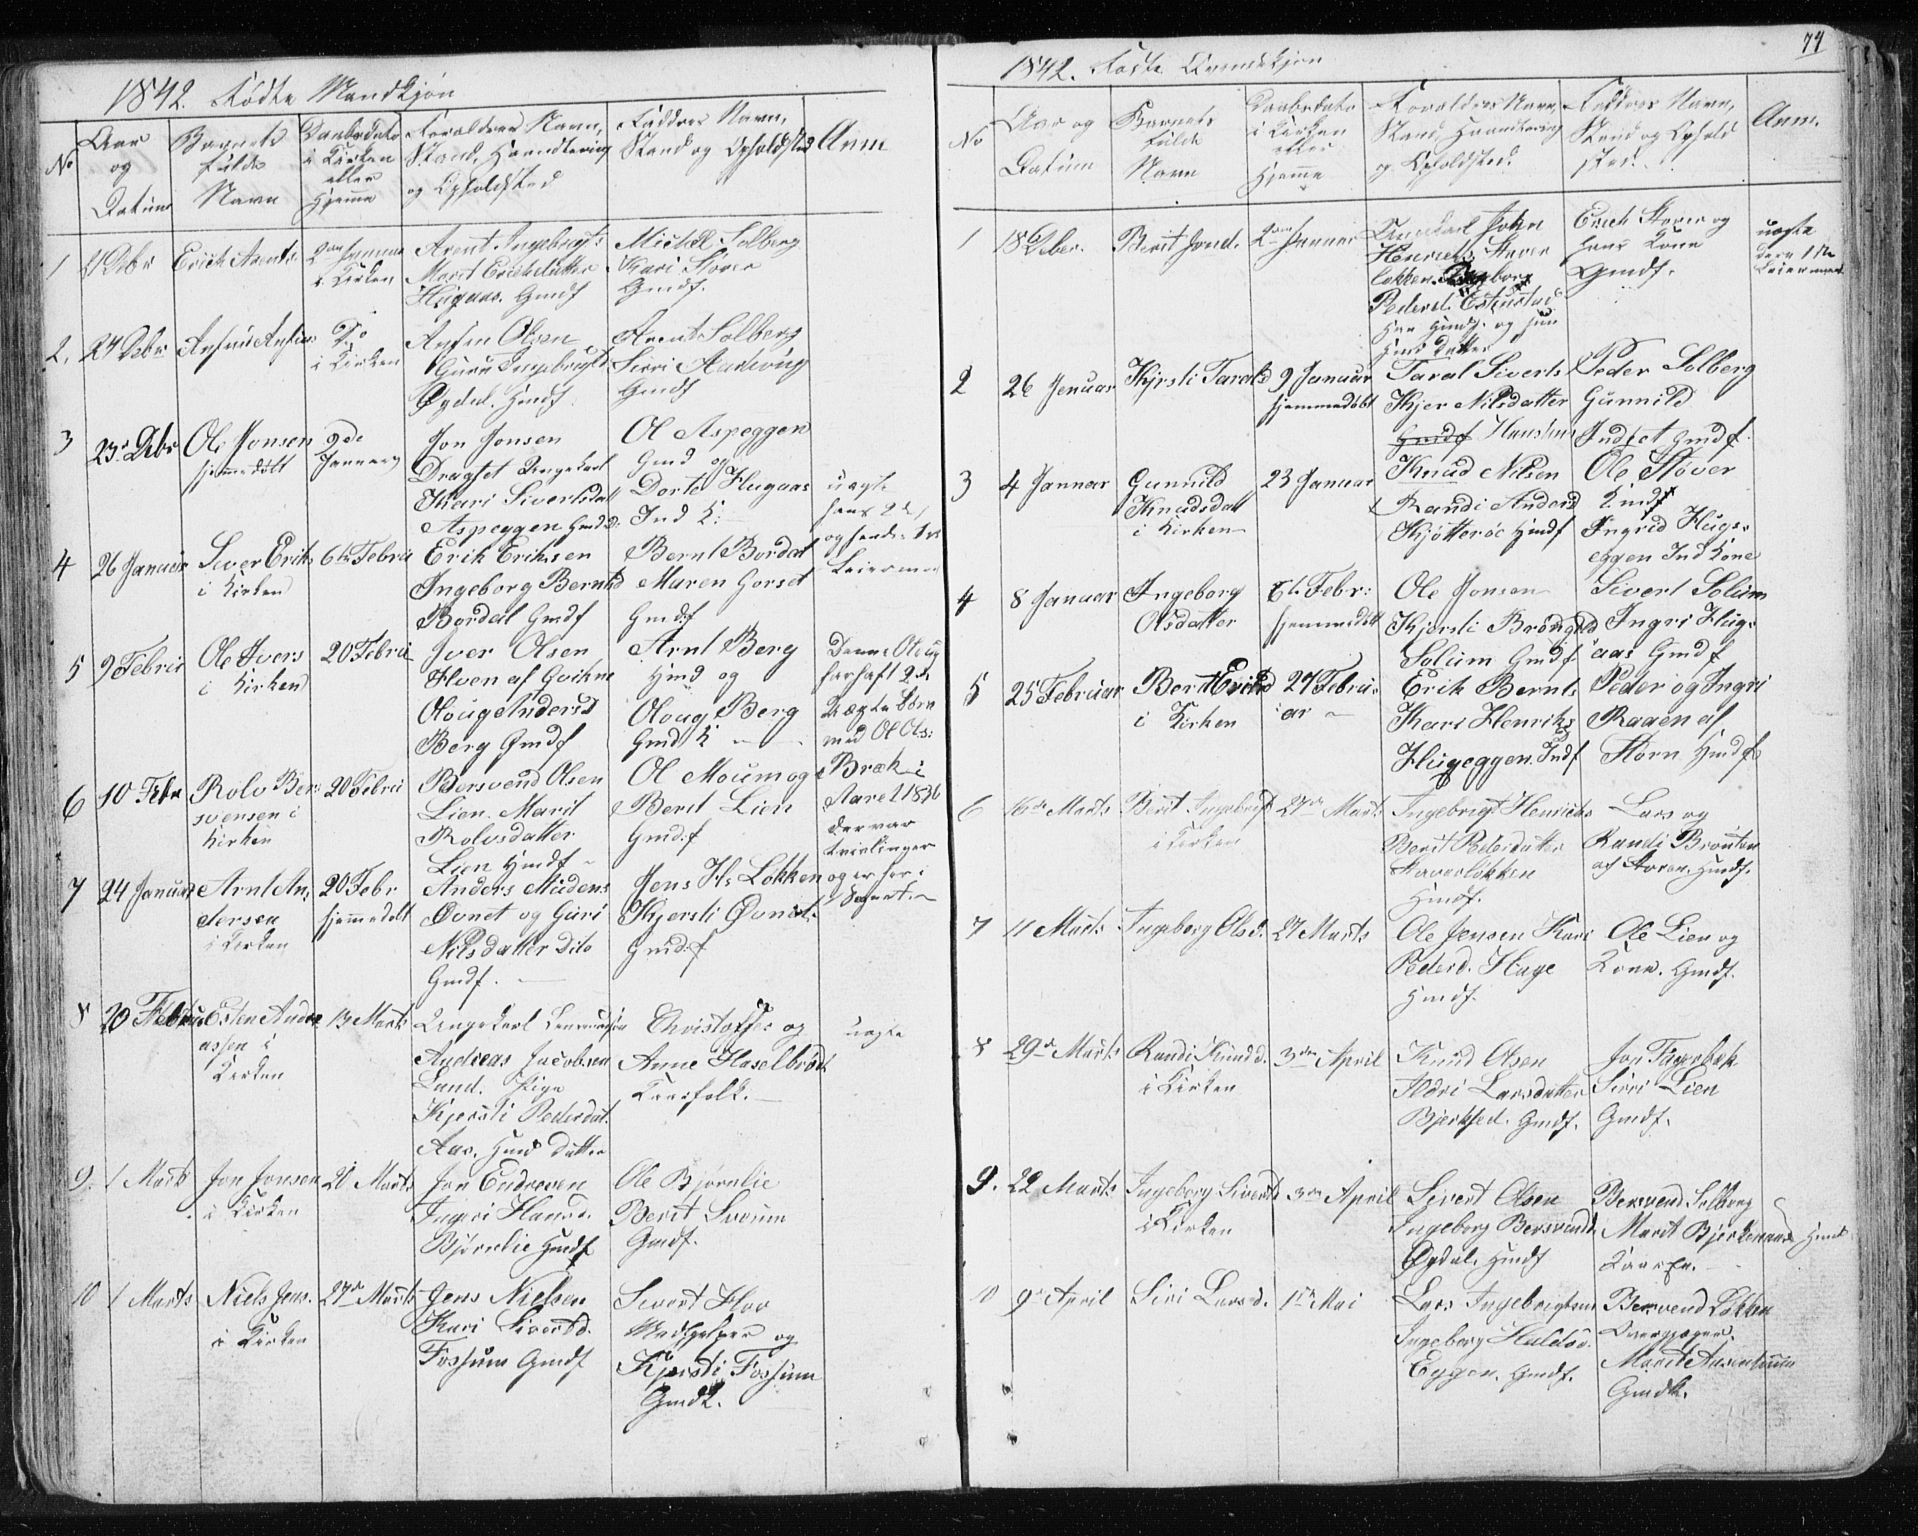 1842. Fødte Mandkjøn
No
Aar
og
Datum
Barnets
fulde
Navn
Daabsdato
i Kirken
eller
Hjemme
Forældres Navn,
Stand, Haandtering
og Opholdsted
Faddres Navn,
Stand og Opholdsted
Anm
1
Decbr
Erich Arents.
2den Januar
i Kirken
Arent Ingebrigts:
Marit Erichsdatter
Hugaas. Gmdf
Michel Solberg
Kari Støver
Gmdf.
2.
24 Decbr
Anfin Anfins
Do
i Kirken
Anfin Olsen
Guru Ingebrigtsd
Øydal. Hmdf.
Arent Solberg
Sirri
Gmdf
3
23 Decbr
Ole Jonsen
hjemmedøbt
2de
Januarij
Jon Jonsen
Dragset Ungekarl
Kari Sivertsdatt
Aspeggen Gmd.
Ol Aspeggen
Gmd og
Dorte Hugaas
Ind K:
uægte
hans 2d,
og hendes 1ste
Leiermaal
4
26 Januar
Siver Eriks
i Kirken
6te Febru
Erik Eriksen
Ingeborg Berntsd
Bordal Gmdf
Bernt Bordal
Maren Gorset
Gmdf
5
9 Februar
Ole Ivers
i Kirken
20 Febru
Iver Olsen
Hven af Qvikne
Oloug Andersd
Berg Gmdf
Arnt Berg
Hmd og
Oloug Berg
Gmd K
Denne Oloug
har haft 2de
Uægte Børn
med Ol Ols:
Bræk i
Aaret 1836
der var
tvislinger
og er her i
Sognet.
6
10 Febr
Rolv Ber-
svensen i
Kirken
20 Febru
Bersvend Olsen
Lien Marit
Rolvsdatter
Lien Hmdf
Ol Moum og
Berit Lien
Gmdf
7
24 Januar
Arnt An-
dersen
i Kirken
20 Febr
hjemmedøbt
Anders
Øvnet og Guri
Nilsdatter Dito
Gmdf.
Jens Hs Løkken
Kjersti Øvnet
Gmdf
8
20 Februar
Esten Andre-
assen i
Kirken
13 Marts
Ungekarl
Andreas Jacobsen
Lund. Pige
Kjersti Pedersdat.
Aas. Hmds Datter
Christoffer og
Anne Haselbroet
Kaarfolk.
uægte
9.
1 Marts
Jon Jonsen
i Kirken
20 Marts
Jon Endresen
Ingri Hansd.
Bjørnlie Hmdf
Ole Bjørnlie
Berit
Gmdf.
10
1 Marts
Niels Jens.
i Kirken
27de Marts
Jens Nielsen
Kari Sivertsd.
Fossum Gmdf
Sivert Floe
Medhjelper og
Kjersti Fossum
Gmdk.
74
1842. Fødte Qvindekjøn
No
Aar og
Datum
Barnets
fulde
Navn
Daabsdato
i Kirken
eller
Hjemme
Forældres Navn,
Stand, Haandtering
og Opholdsted.
Faddres Navn,
Stand og Ophold
sted.
Anm.
1
18 Decbr.
Berit Jonsd.
2den Januar
Ungekarl John
Henrichs. Støver
løkken. Ingeborg
Pedersd. Estenstad
Han Hmds. og hun
Hmds Datter
Erich Støver og
hans Kone
Gmdf.
uægte
deres 1ste
Leiermaal
2
26 Januar
Kjersti Taralsd
9 Januar
hjemmedøbt
Taral Siverts
Kjer Nilsdatter
Gmdf
Peder Solberg
Gunnild
Indset Gmdf
3
4 Januar
Gunnild
Knudsdatt
i Kirken
23 Januar
Knud Nilsen
Randi Andersd
Kjøtterøe Hmdf
Ole Støver
Kmdf
Ingrid Hugs-
eggen Ind Kone
4
8 Januar
Ingeborg
Olsdatter
6te Febr:
hjemmedøbt
Ole Jonsen
Kjersti
Solum Gmdf
Sivert Solum
Ingri Hug-
aas Gmdf
5
25 Februar
Berit Eriksd
i Kirken
27 Febru-
ar
Erik Bernts.
Kari Henriks
Hugeggen Indf
Peder og Ingri
Raaen af
Horn Hmdf
6
16de Marts
Berit Ingebrigtsd
i Kirken
27de Marts
Ingebrigt Henrichs
Berit Pedersdatter
Støverløkken
Hmdf.
Lars og
Randi Brouten
af Horn. Hmdf.
7
11 Marts
Ingeborg Olsd.
27 Marts
Ole Jensen Kari
Pedersd. Hage
Hmdf.
Ole Lien og
Kone. Gmdf.
8
29de Marts
Randi Knudsd.
i Kirken
3den April
Knud Olsen
Larsdatter
Gmdf.
Jon Fagerbek
Sirri Lien
Gmdf.
9.
22 Marts
Ingeborg Sivertsd
i Kirken
3den April
Sivert Olsen
Ingeborg Bersvendsd
Øydal. Hmdf
Bersvend Solberg
Marit Bjerkenaas Hmd
10
9de April
Siri Larsd.
1ste Mai
Lars Ingebrigtsen
Ingeborg Haldos.
Eggen. Gmdf.
Bersvend Løkken
Marit
Gmdk.